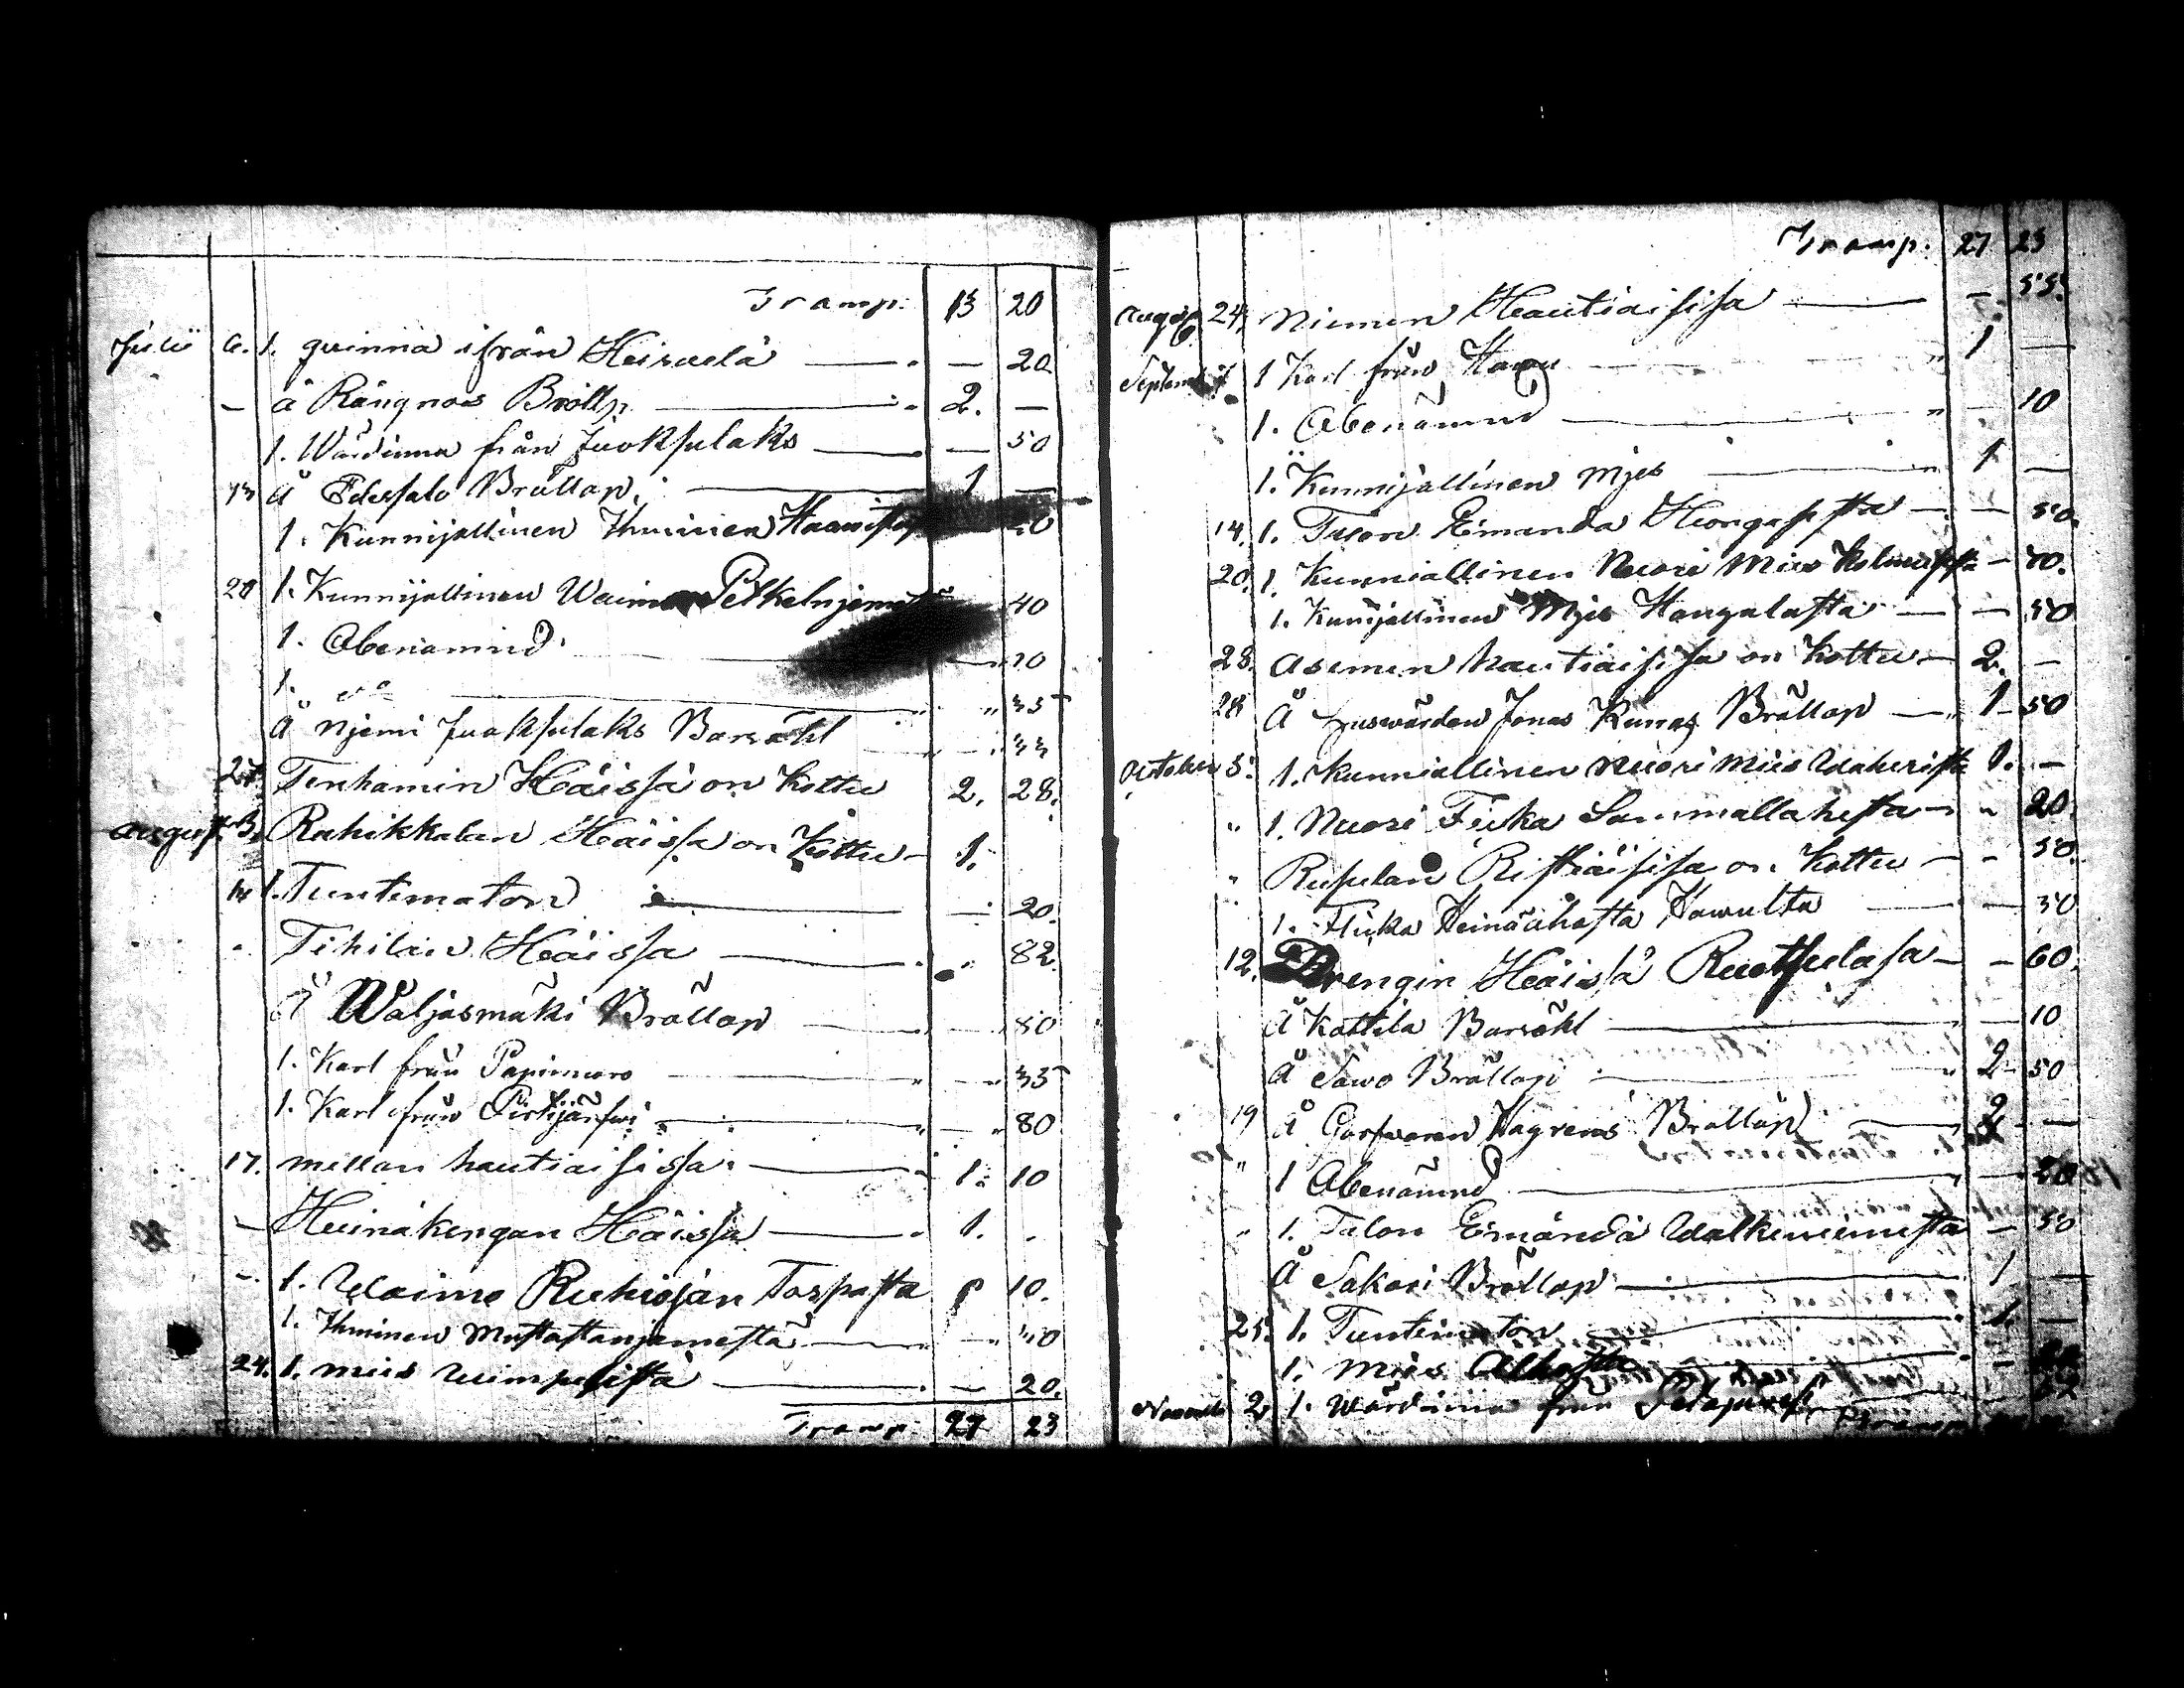 Transp. 13 20
Julii 6. 1. qvinna ifrån Heiraelä — — 20
— å Rängnos Bröllp. — 2. —
1. Wärdinna från Juoksulaks — — 50
13 å Edessalo Bröllop. — 1 —
1. Kunnijallinen Ihminen
20 1. Kunnijallinen Waimo 40
1. Obenämnd
1. — " 35
Å Njemi Juoksulaks Barsöhl — " 33
27. Tenhamin Häissä on Kottu 2. 28.
August 3. Rahikkalan Häissä on Kottu — 1.
14 1. Tuntematon — — 20.
" Tihilän Häissa — " 82.
Å Waljasmäki Bröllop — — 80
1. Karl från Papinsaro — — 35
1. Karl från Pirkijärfwi — — 80
17. mellan hautiaisissa. — 1. 10
— Heinäkengan Häissa — 1. .
— 1. Waimo Ruhiojan Torpasta 10.
1. Ihminen Mustastanjemestä — — 40
24. 1. mies Wimpelistä — — 20.
Transp. 27 23
Transp. 27 23
August 24. Niemen Hautiaisissa — — 55.
Septemb 1 Karl från — 1 —
1. Obenämnd — — 10
1. Kunnijallinen Mjes — 1 —
14. 1. Tuson Emanda Hongasesta — — 50.
20. 1. Kunniallinen Nuori Mies — 70.
1. Kunijallinen Mjes Hangalasta — — 50
23. Asemen hautiaisissa on Kottu — 2. —
28 Å Huswärden Jonas Runas Bröllop — 1 — 50
October 5. 1. Kunniallinen Nuori Mies 1. —
" 1. Nuori Fiika Sammallahesta — " 20.
" Rusulan Ristiäisissa on Kottu — — 50.
1. Flicka Heinäahosta Hawulta — — 50
12. Drengin Häissä Ruotsulasa — — 60.
Å Kattila Barsöhl — — 10
Å Sawo Bröllop — 2 — 50
19 Å Hagrens Bröllop — 2 —
" 1 Obenämnd —
" 1. Talon Emändä Walkeniemesta — 50
Å Sakari Bröllop — 1 —
25. 1. Tuntematon — 1. —
1. Mies —
Novemb 2. 1. Wärdinna från